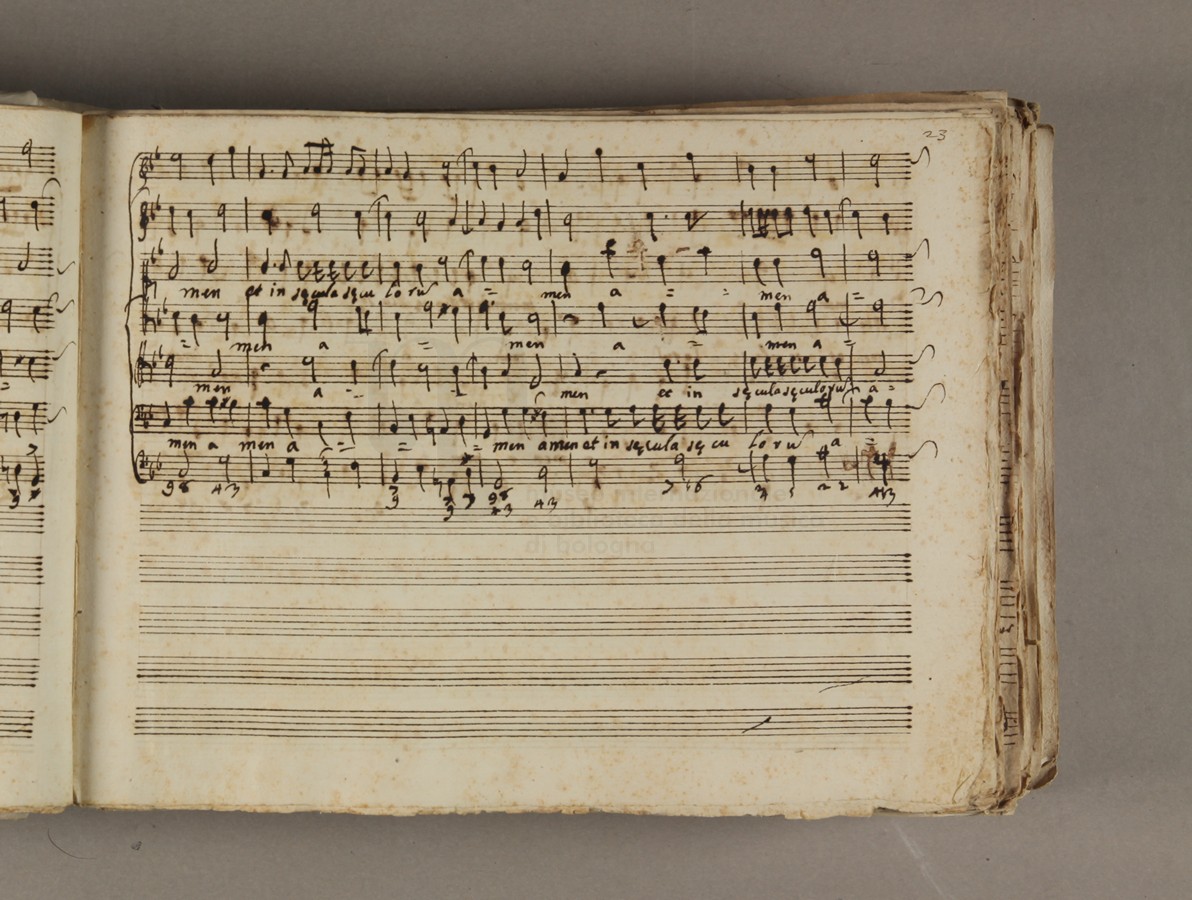 23
men et in sęcula sęcu loru a = men a = = men a =
= men a = men a = men a =
men a - - men et in sęcula sęculoru a =
men a men a = = = men amen et in sęcula sęcu loru a =
98 43 7 98 43 43 7 6 43
museo internazionale
e biblioteca della musica
di bologna